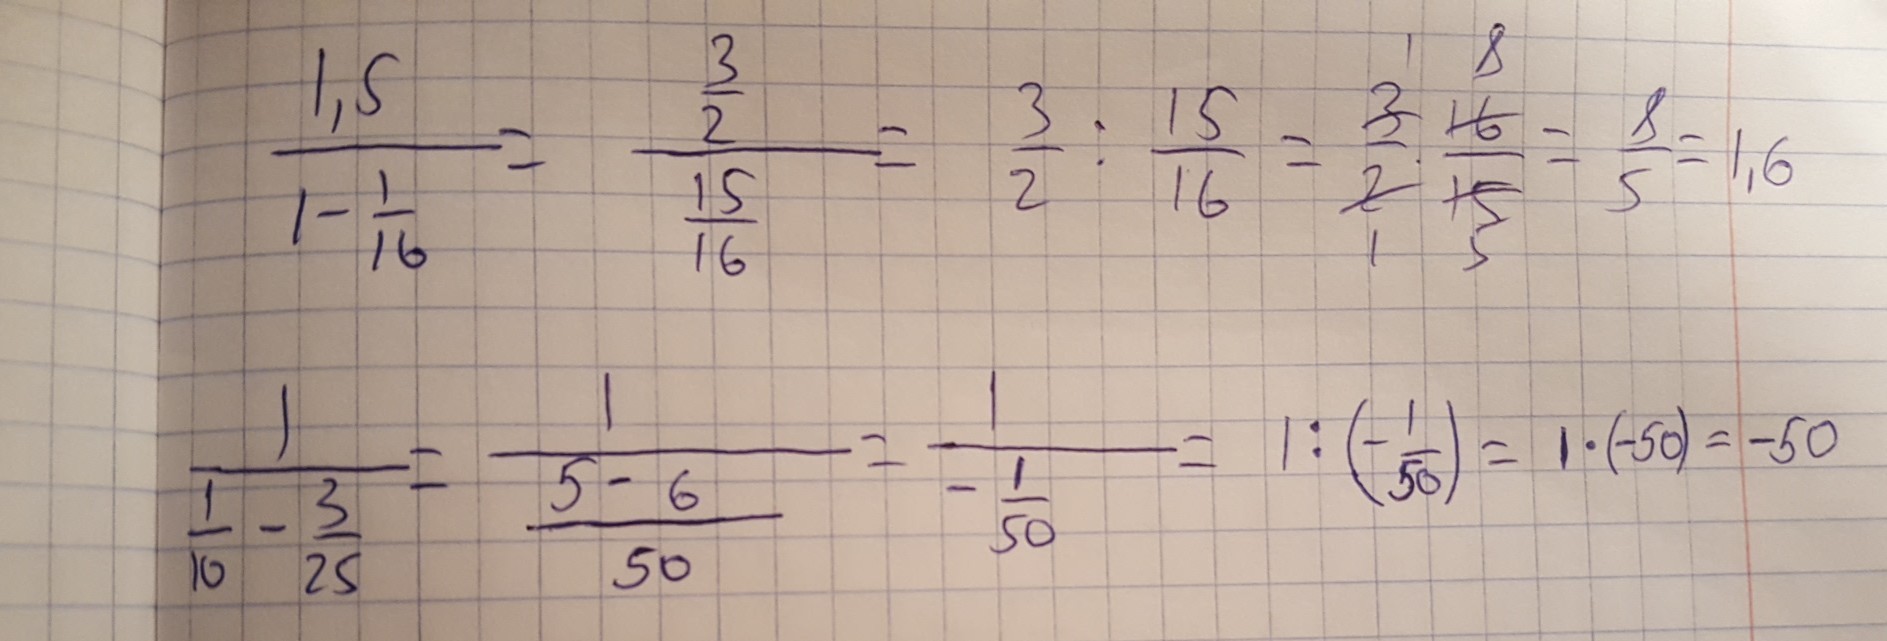 1,5/(1 - 1/16) = (3/2)/(15/16) = 3/2 : 15/16 = 3/2 · 16/15 = 8/5 = 1,6
1/(1/10 - 3/25) = 1/((5 - 6)/50) = 1/(- 1/50) = 1 : (- 1/50) = 1 · (-50) = -50